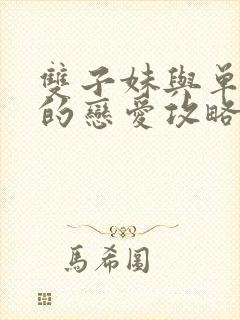 雙子妹與單
的戀愛攻略
馬希圖